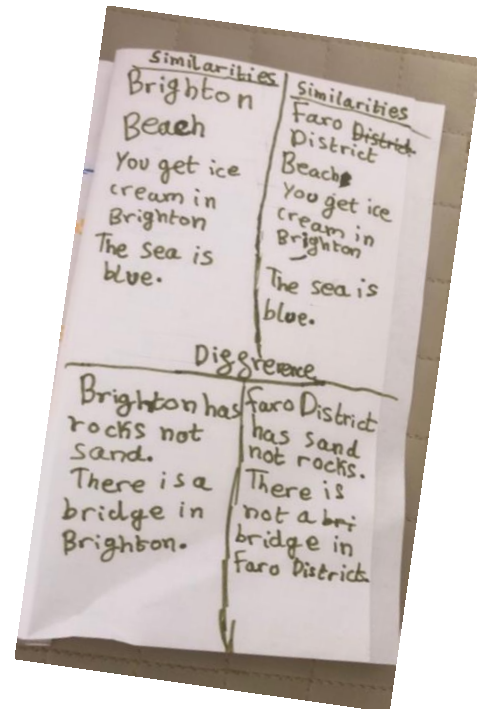 Similarities
Brighton
Beach
You get ice
cream in
Brighton
The sea is
blue.
Similarities
Faro District
District
Beach
You get ice
cream in
Brighton
The sea is
blue.
Diggrerence
Brighton has
rocks not
sand.
There is a
bridge in
Brighton.
Faro District
has sand
not rocks.
There is
not a bri
bridge in
Faro District.